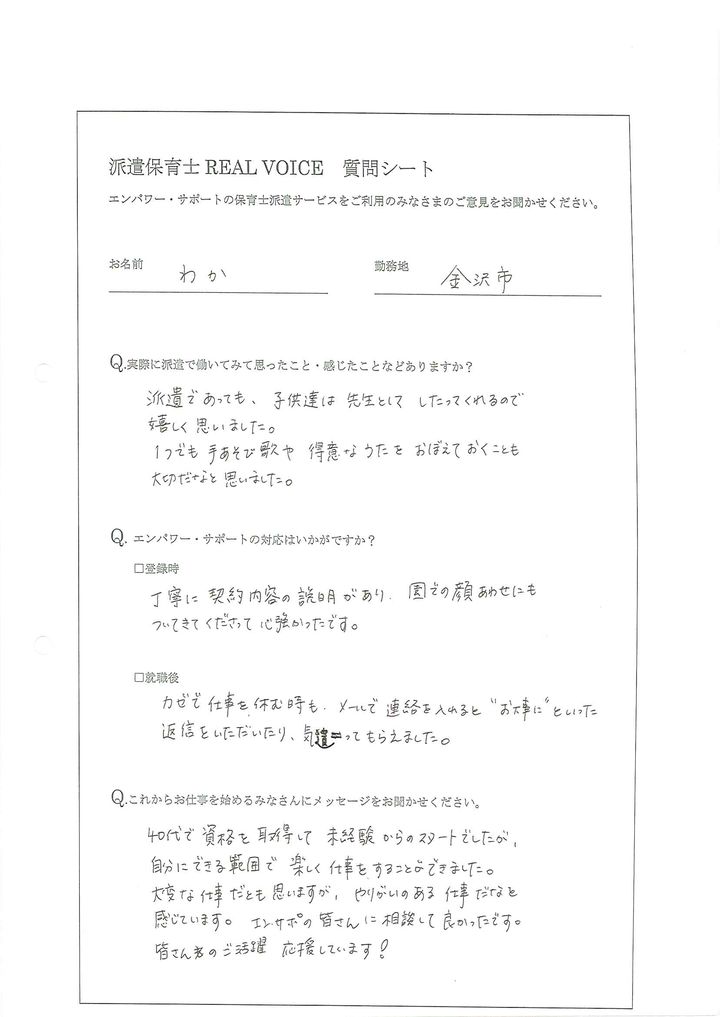 派遣保育士 REAL VOICE 質問シート
エンパワー・サポートの保育士派遣サービスをご利用のみなさまのご意見をお聞かせください。
お名前 わか 勤務地 金沢市
Q.実際に派遣で働いてみて思ったこと・感じたことなどありますか？
派遣であっても、子供達は先生として したってくれるので
嬉しく思いました。
1つでも手あそび歌や 得意なうたを おぼえておくことも
大切だなと思いました。
Q.エンパワー・サポートの対応はいかがですか？
□登録時
丁寧に契約内容の説明があり、園での顔あわせにも
ついてきてくださって心強かったです。
□就職後
カゼで仕事を休む時も、メールで連絡を入れると"お大事に"といった
返信をいただいたり、気遣ってもらえました。
Q.これからお仕事を始めるみなさんにメッセージをお聞かせください。
40代で資格を取得して 未経験からのスタートでしたが、
自分にできる範囲で 楽しく仕事をすることができました。
大変な仕事だとも思いますが、やりがいのある仕事だなと
感じています。エンサポの皆さんに相談して良かったです。
皆さん方のご活躍 応援しています!